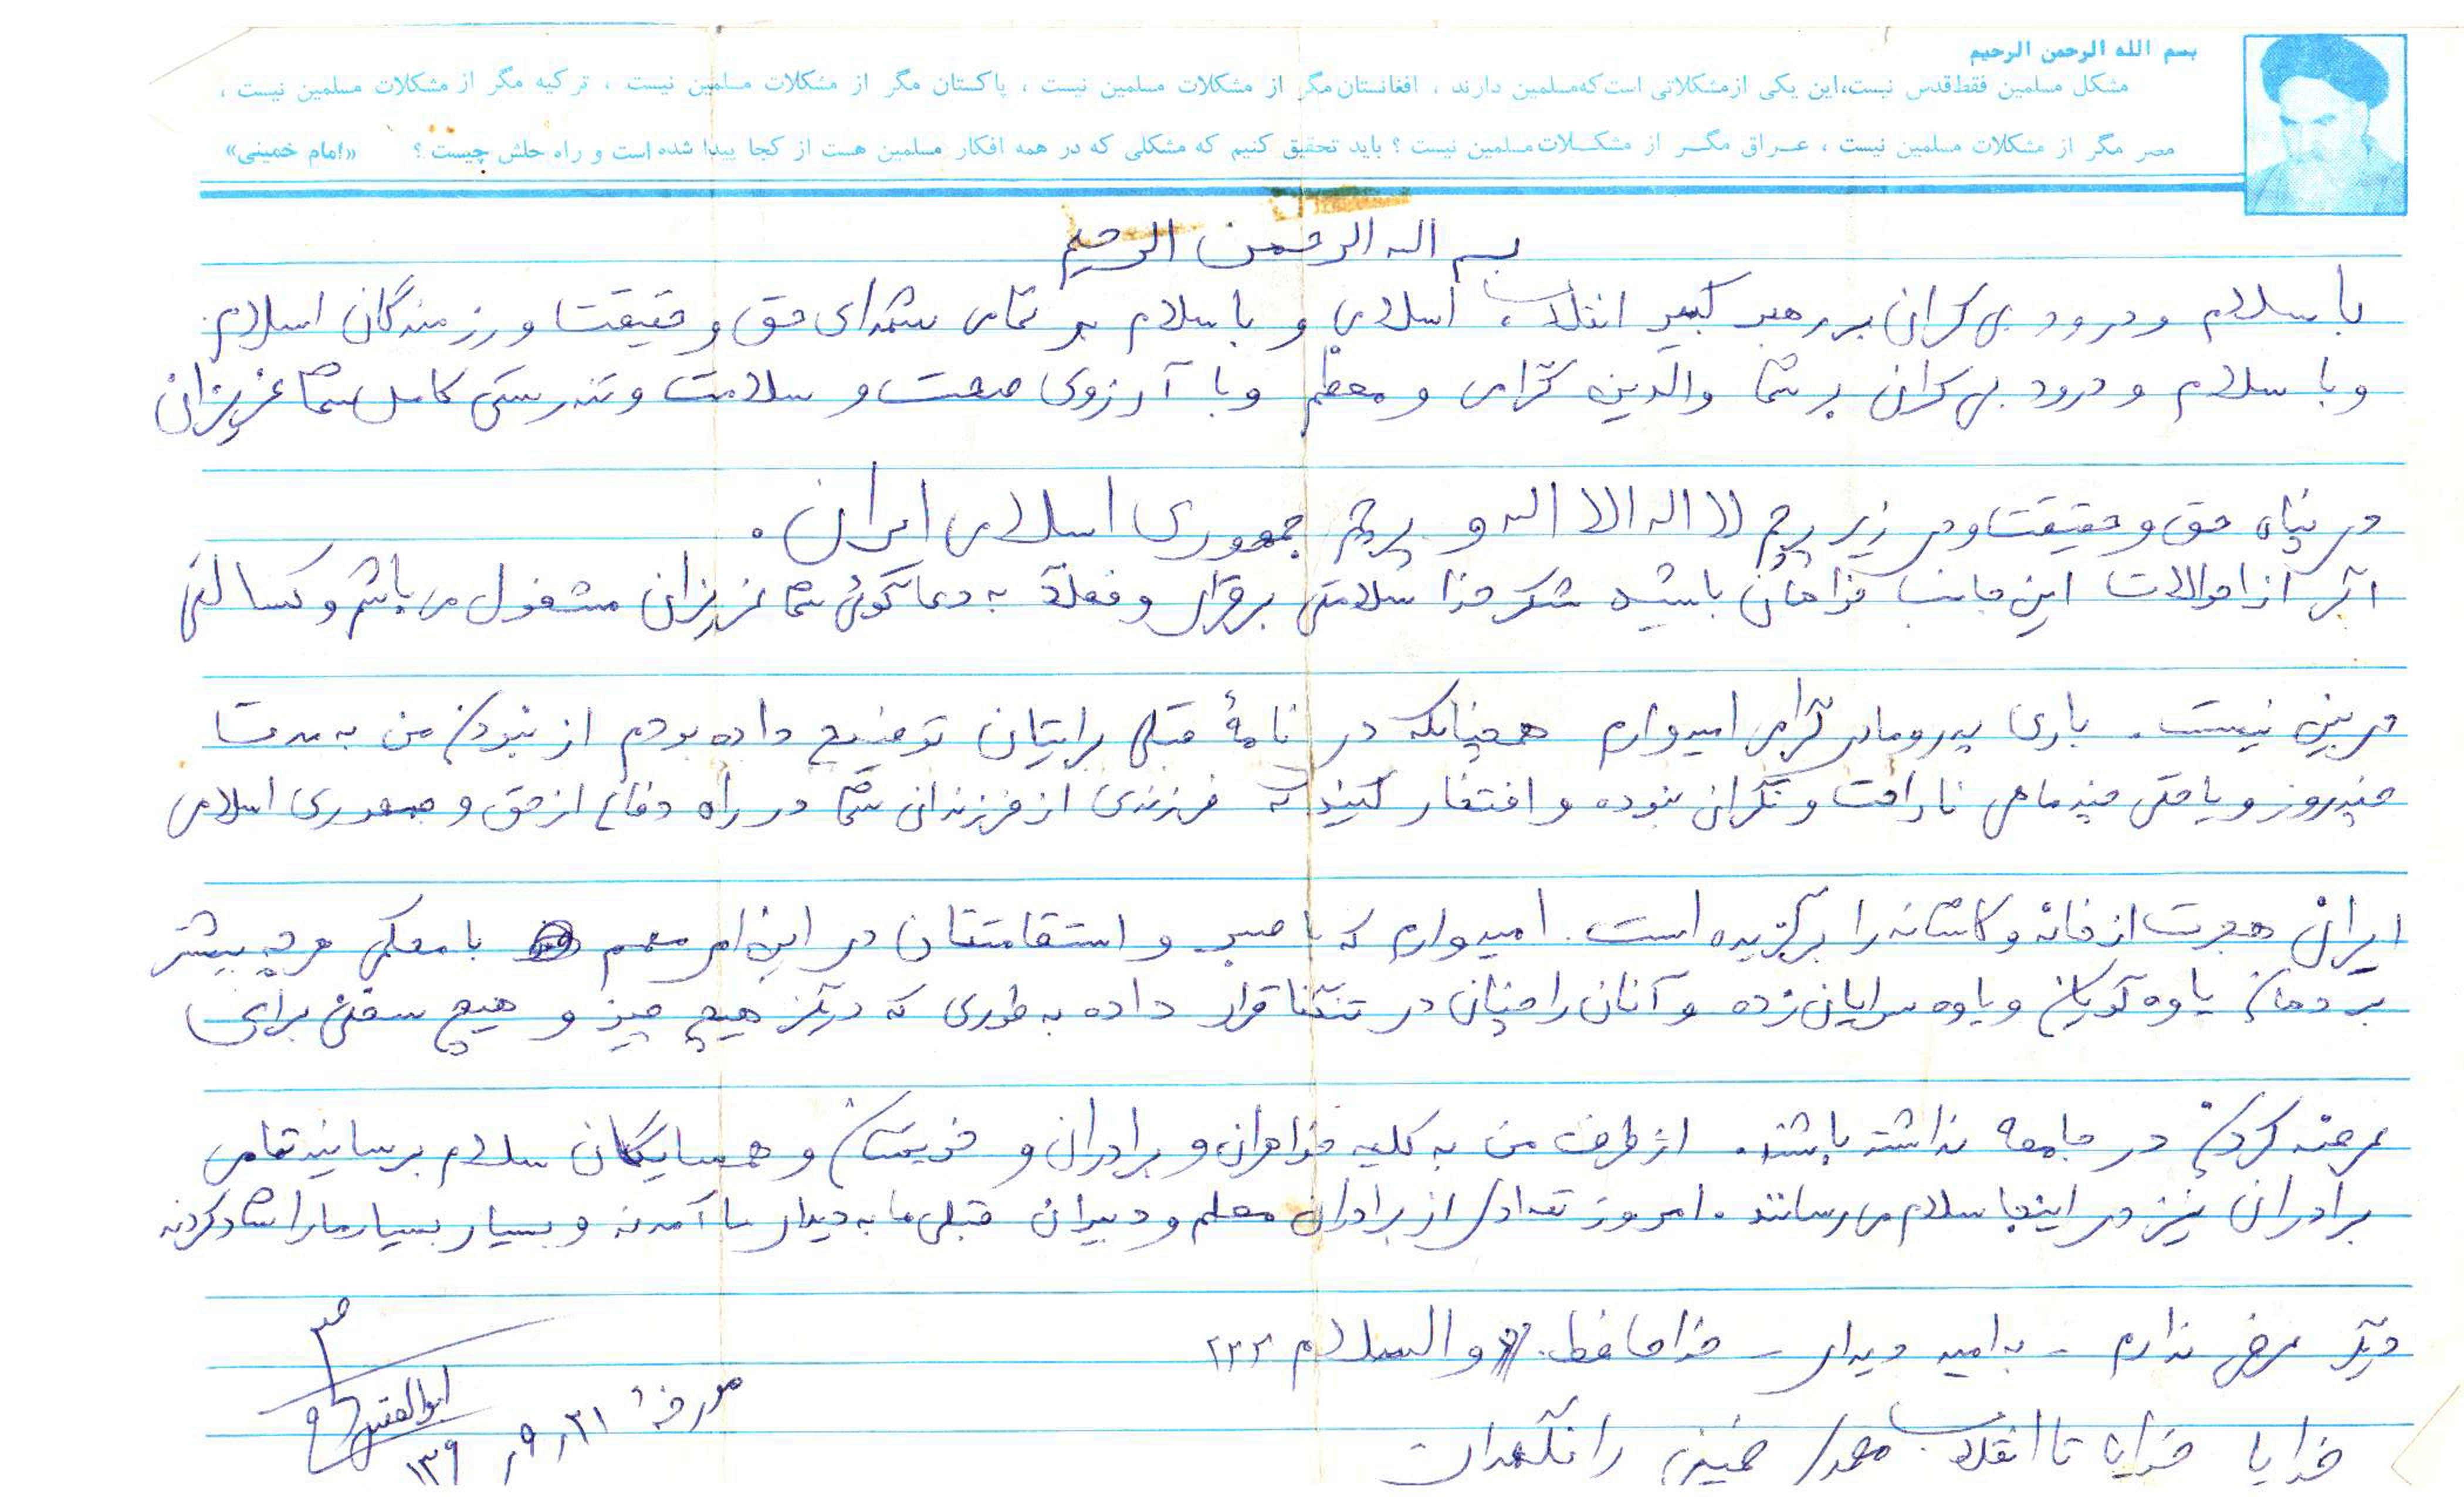 بسم الله الرحمن الرحیم
مشکل مسلمین فقط قدس نیست، این یکی از مشکلاتی است که مسلمین دارند ، افغانستان مگر از مشکلات مسلمین نیست ، پاکستان مگر از مشکلات مسلمین نیست ، ترکیه مگر از مشکلات مسلمین نیست ،
مصر مگر از مشکلات مسلمین نیست ، عراق مگر از مشکلات مسلمین نیست ؟ باید تحقیق کنیم که مشکلی که در همه افکار مسلمین هست از کجا پیدا شده است و راه حلش چیست ؟ «امام خمینی»
بسم اله الرحمن الرحیم
با سلام و درود بی کران بر رهبر کبیر انقلاب اسلامی و با سلام بر تمامی شهدای حق و حقیقت و رزمندگان اسلام
و با سلام و درود بی کران بر شما والدین گرامی و معظم و با آرزوی صحت و سلامت و تندرستی کامل شما عزیزان
در پناه حق و حقیقت و در زیر پرچم لا اله الا اله و پرچم جمهوری اسلامی ایران .
اگر از احوالات این جانب خواهان باشید شکر خدا سلامتی برقرار و فعلاً به دعاگوئی شما عزیزان مشغول می باشم و کسالتی
در بین نیست . باری پدر و مادر گرامی امیدوارم همچنانکه در نامهٔ قبلی برایتان توضیح داده بودم از نبودن من به مدت
چند روز و یا حتی چند ماهی ناراحت و نگران نبوده و افتخار کنید که فرزندی از فرزندانی شما در راه دفاع از حق و جمهوری اسلامی
ایران هجرت از خانه و کاشانه را برگزیده است . امیدوارم که با صبر و استقامتتان در این امر مهم با محکمی هر چه بیشتر
بر دهان یاوه گویان و یاوه سرایان زده و آنان را چنان در تنگنا قرار داده به طوری که دیگر هیچ چیز و هیچ سخنی برای
عرضه کردن در جامعه نداشته باشند . از طرف من به کلیه خواهران و برادران و خویشان و همسایگان سلام برسانید تمامی
برادران نیز در اینجا سلام می رسانند . امروز تعدادی از برادران معلم و دبیران قبلی ما به دیدار ما آمدند و بسیار بسیار ما را شاد کردند
دیگر عرضی ندارم - به امید دیدار - خداحافظ . والسلام
خدایا خدایا تا انقلاب مهدی خمینی را نگهدار
مورخهٔ ۲۱ ر ۹ ر
ابوالفضل